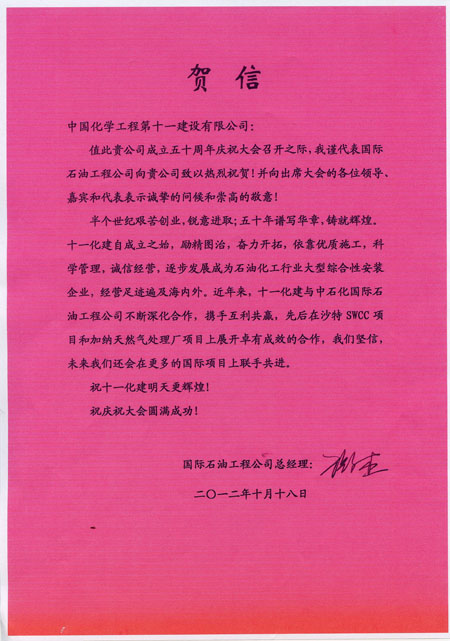 贺信
中国化学工程第十一建设有限公司：
值此贵公司成立五十周年庆祝大会召开之际，我谨代表国际
石油工程公司向贵公司致以热烈祝贺！并向出席大会的各位领导、
嘉宾和代表表示诚挚的问候和崇高的敬意！
半个世纪艰苦创业，锐意进取；五十年谱写华章，铸就辉煌。
十一化建自成立之始，励精图治，奋力开拓，依靠优质施工，科
学管理，诚信经营，逐步发展成为石油化工行业大型综合性安装
企业，经营足迹遍及海内外。近年来，十一化建与中石化国际石
油工程公司不断深化合作，携手互利共赢，先后在沙特SWCC项
目和加纳天然气处理厂项目上展开卓有成效的合作，我们坚信，
未来我们还会在更多的国际项目上联手共进。
祝十一化建明天更辉煌！
祝庆祝大会圆满成功！
国际石油工程公司总经理：
二〇一二年十月十八日